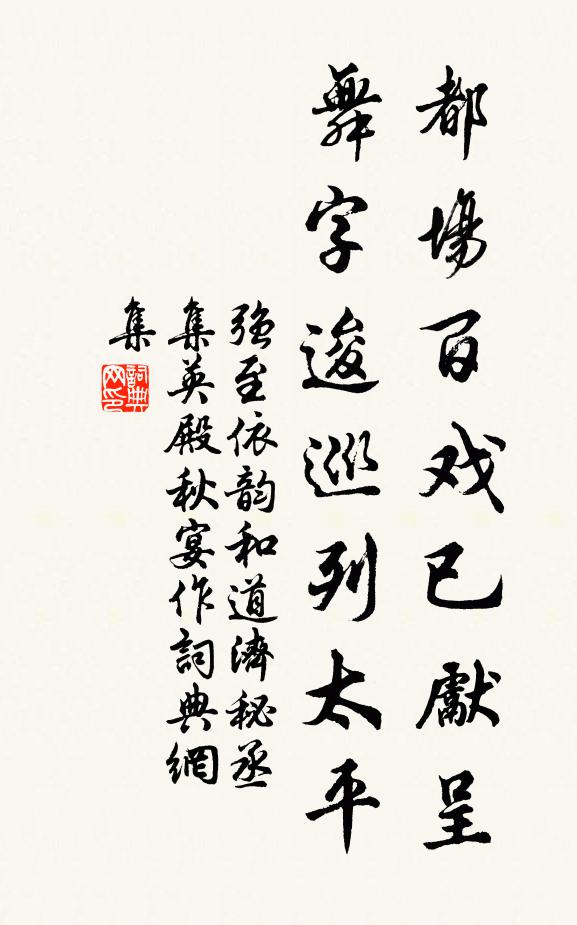 都場百戏已獻呈
舞字逡巡列太平
强至依韵和道濟秘丞
集英殿秋宴作詞典網
集
詞典
网印